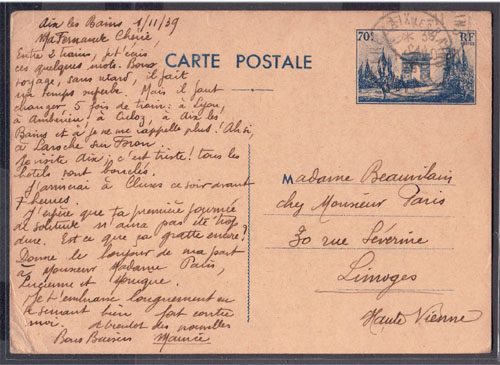 Aix les Bains 1/11/39
Ma Fernande Chérie,
Entre 2 trains, je t'écris
ces quelques mots. Bon
voyage, sans retard, il fait
un temps superbe. Mais il faut
changer 5 fois de train : à Lyon,
à Ambérieu, à Culoz, à Aix les
Bains et à je ne me rappelle plus ! Ah si,
à Laroche sur Foron.
Je visite Aix, c'est triste ! tous les
hotels sont bouclés.
J'arriverai à Cluses ce soir avant
7 heures.
J'espère que ta première journée
de solitude n'aura pas été trop
dure. Est ce que ça gratte encore ?
Donne le bonjour de ma part
à Monsieur Madame Paris,
Lucienne et Monique.
Je t'embrasse longuement en
te serrant bien fort contre
moi. A bientot des nouvelles
Bons Baisers Maurice
CARTE POSTALE
70c
RF
Madame Beauvilais
chez Monsieur Paris
30 rue Séverine
Limoges
Haute Vienne